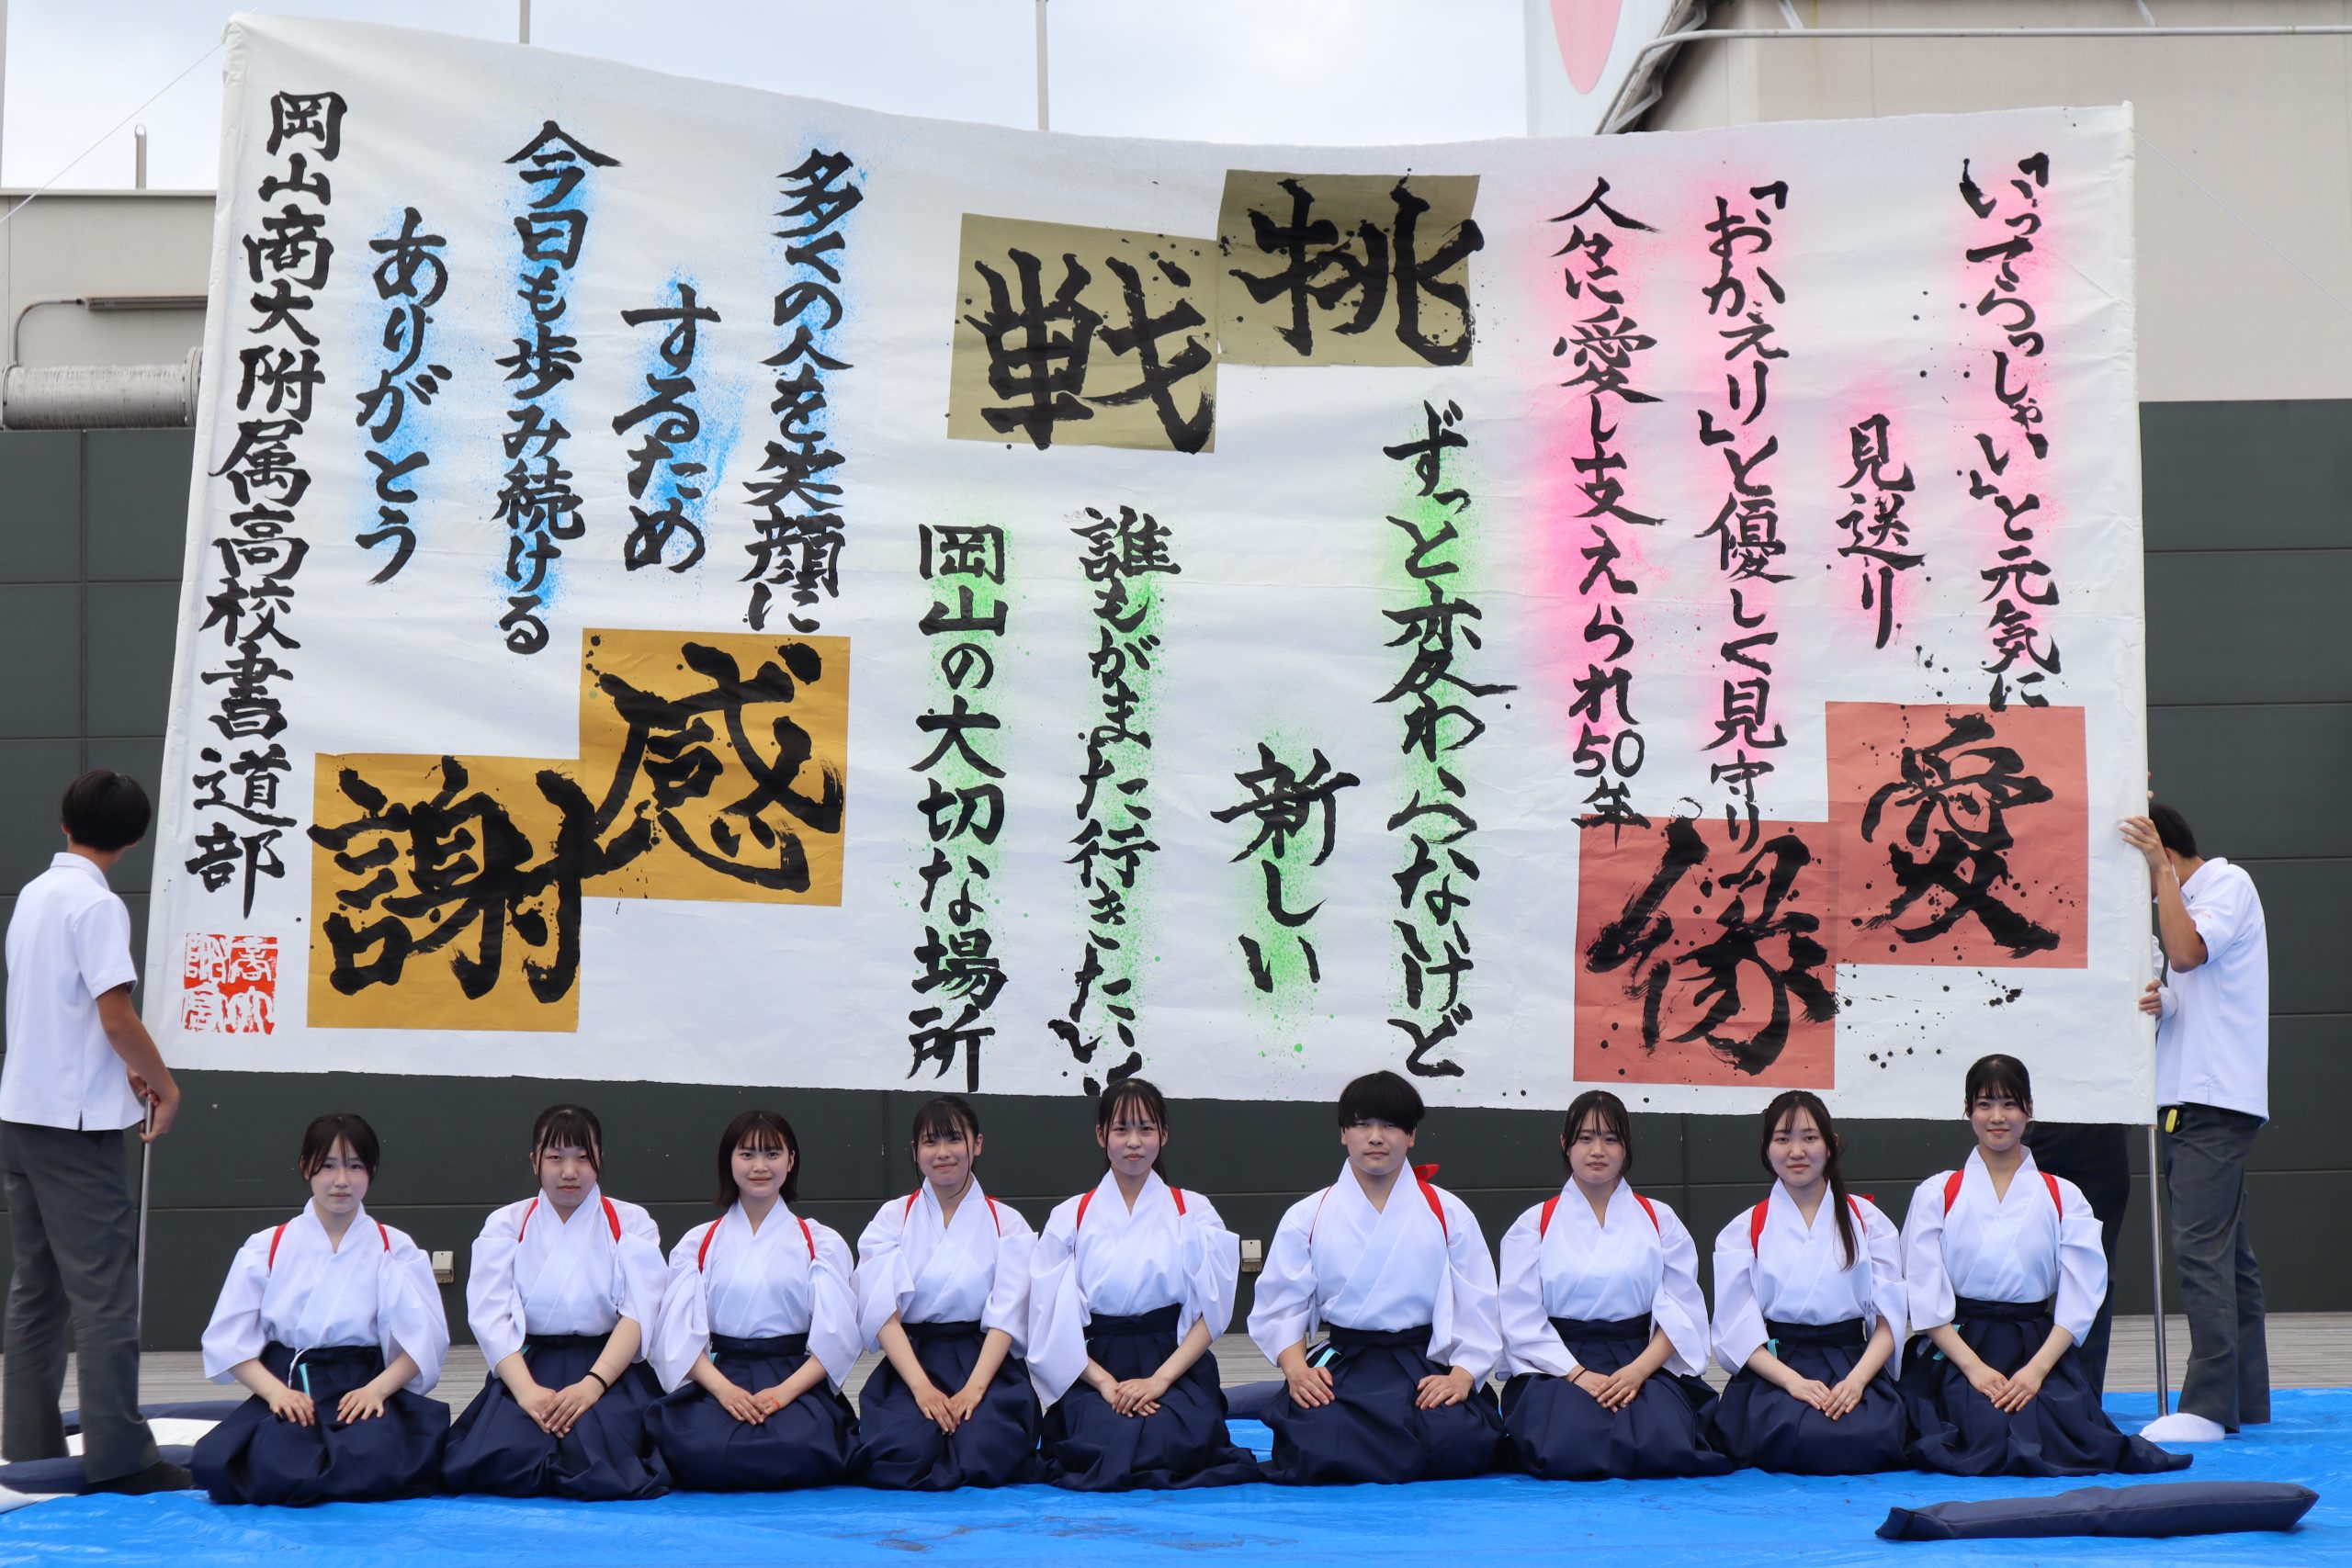 「いってらっしゃい」と元気に
見送り
「おかえり」と優しく見守り
人々に愛し支えられ50年
愛縁
挑戦
ずっと変わらないけど
新しい
誰もがまた行きたい
岡山の大切な場所
多くの人を笑顔に
するため
今日も歩み続ける
ありがとう
感謝
岡山商大附属高校書道部